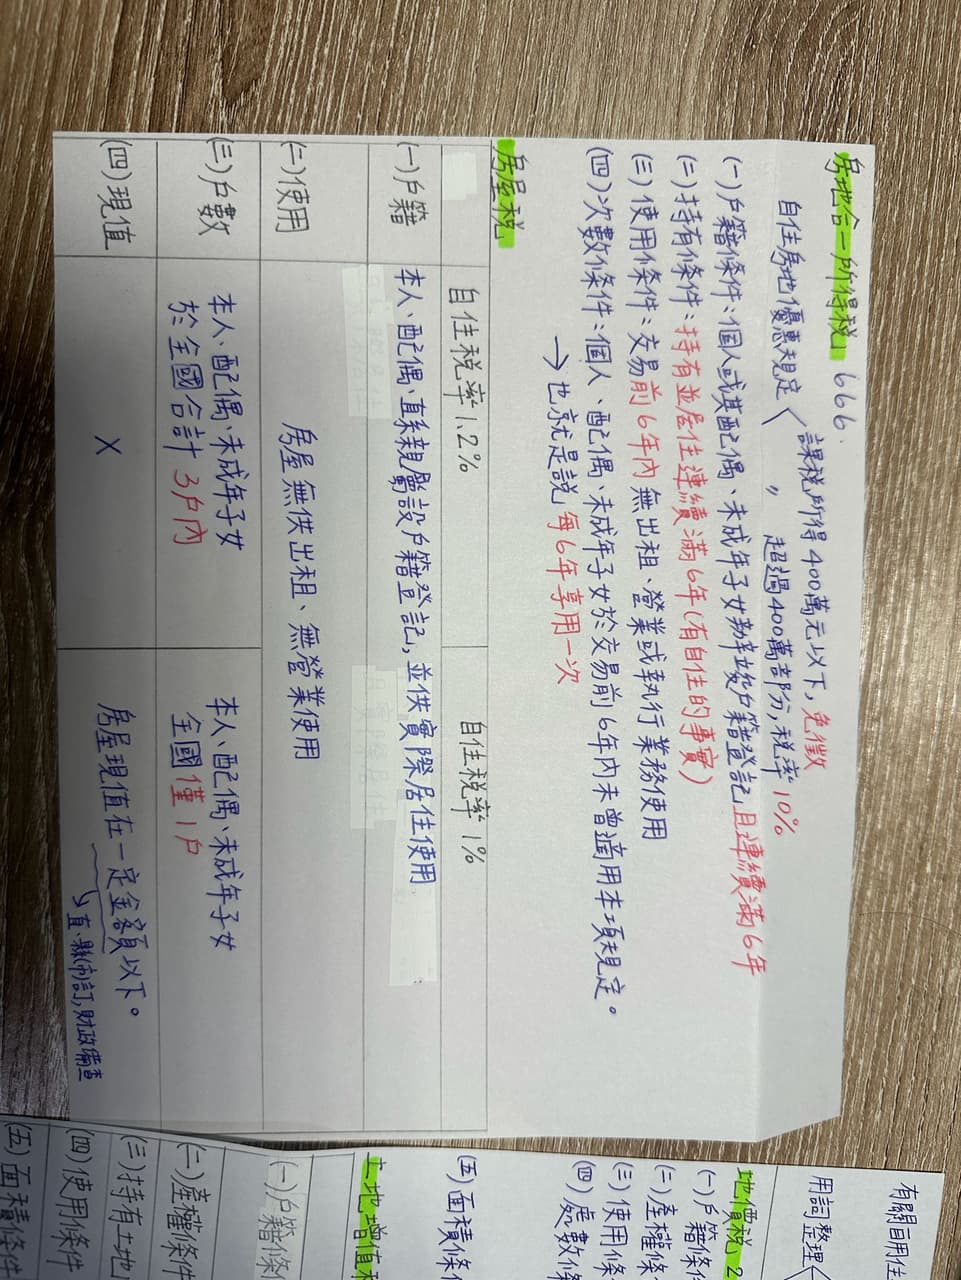 房地合一所得稅 666.
自住房地優惠規定〈 課稅所得400萬元以下,免徵
〃 超過400萬部分,稅率10%
(一)戶籍條件:個人或其配偶、未成年子女辦竣戶籍登記且連續滿6年
(二)持有條件:持有並居住連續滿6年(有自住的事實)
(三)使用條件:交易前6年內無出租、營業或執行業務使用
(四)次數條件:個人、配偶、未成年子女於交易前6年內未曾適用本項規定。
→也就是說 每6年享用一次
房屋稅
自住稅率1.2% 自住稅率1%
(一)戶籍 本人、配偶、直系親屬設戶籍登記,並供實際居住使用
(二)使用 房屋無供出租、無營業使用
(三)戶數 本人、配偶、未成年子女 本人、配偶、未成年子女
於全國合計3戶內 全國僅1戶
(四)現值 X 房屋現值在一定金額以下。
直.縣(市)訂,財政備查
有關自用住
用詞整理〈
地價稅 2
(一)戶籍條件
(二)產權條
(三)使用條
(四)處數條
(五)面積條件
土地增值稅
(一)戶籍條
(二)產權條件
(三)持有土地
(四)使用條件
(五)面積條件